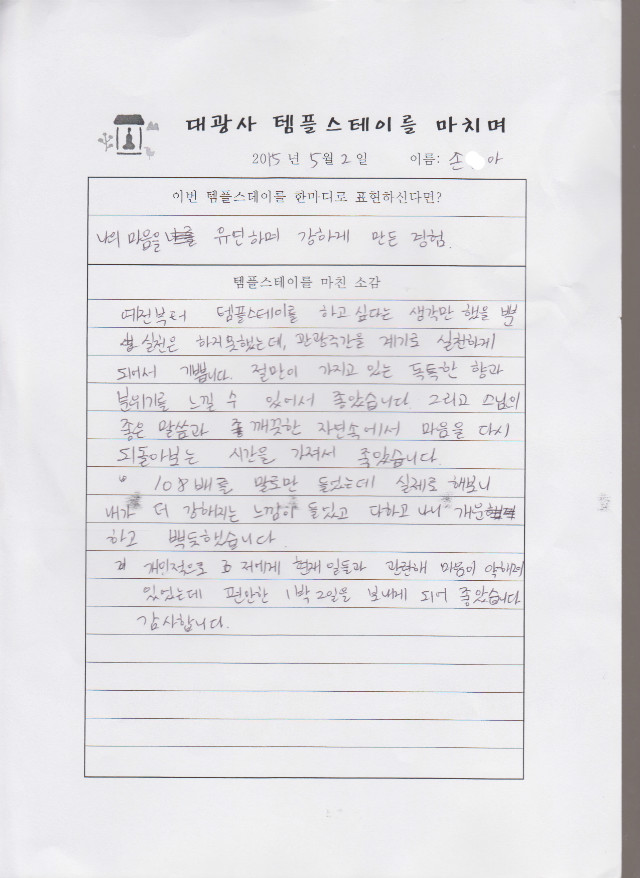 대광사 템플스테이를 마치며
2015년 5월 2일 이름: 손 아
이번 템플스테이를 한마디로 표현하신다면?
나의 마음을 유연하며 강하게 만든 경험.
템플스테이를 마친 소감
예전부터 템플스테이를 하고 싶다는 생각만 했을 뿐
실천은 하지못했는데, 관광주간을 계기로 실천하게
되어서 기쁩니다. 절만이 가지고 있는 독특한 향과
분위기를 느낄 수 있어서 좋았습니다. 그리고 스님의
좋은 말씀과 깨끗한 자연속에서 마음을 다시
되돌아보는 시간을 가져서 좋았습니다.
108배를 말로만 들었는데 실제로 해보니
내가 더 강해지는 느낌이 들었고 다하고 나니 개운
하고 뿌듯했습니다.
개인적으로 저에게 현재 일들과 관련해 마음이 약해져
있었는데 편안한 1박2일을 보내게 되어 좋았습니다
감사합니다.